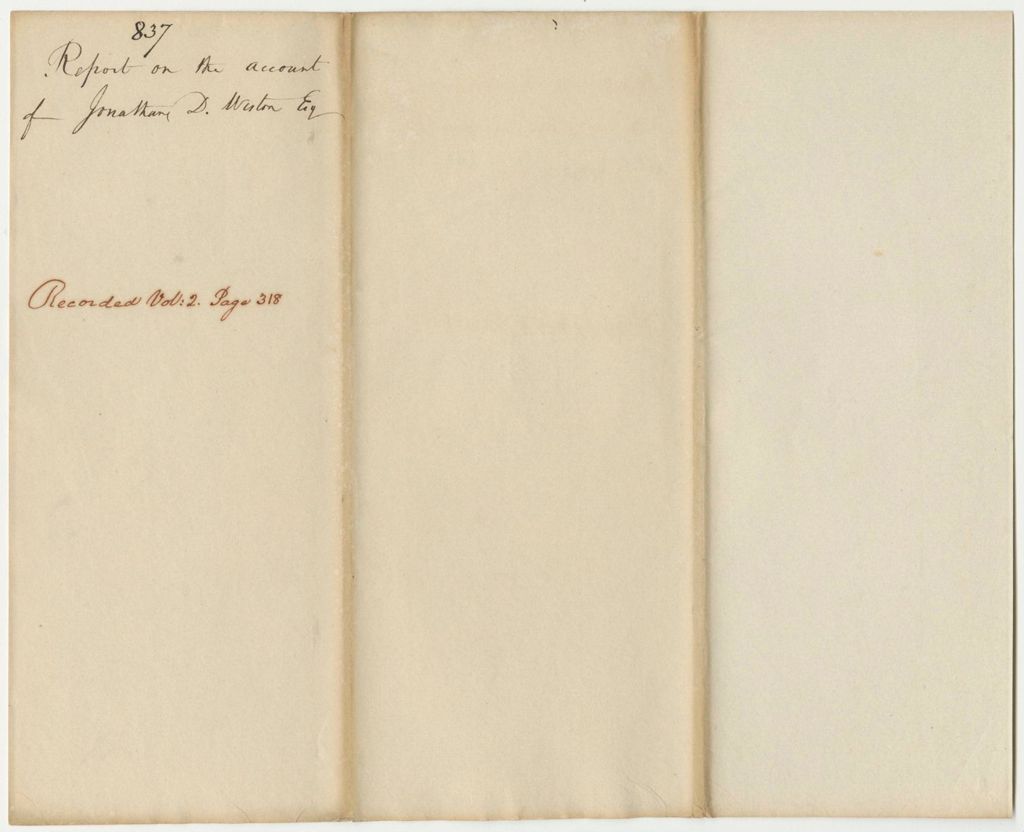 837
Report on the account
of Jonathan D. Weston Esq
Recorded Vol: 2. Page 318